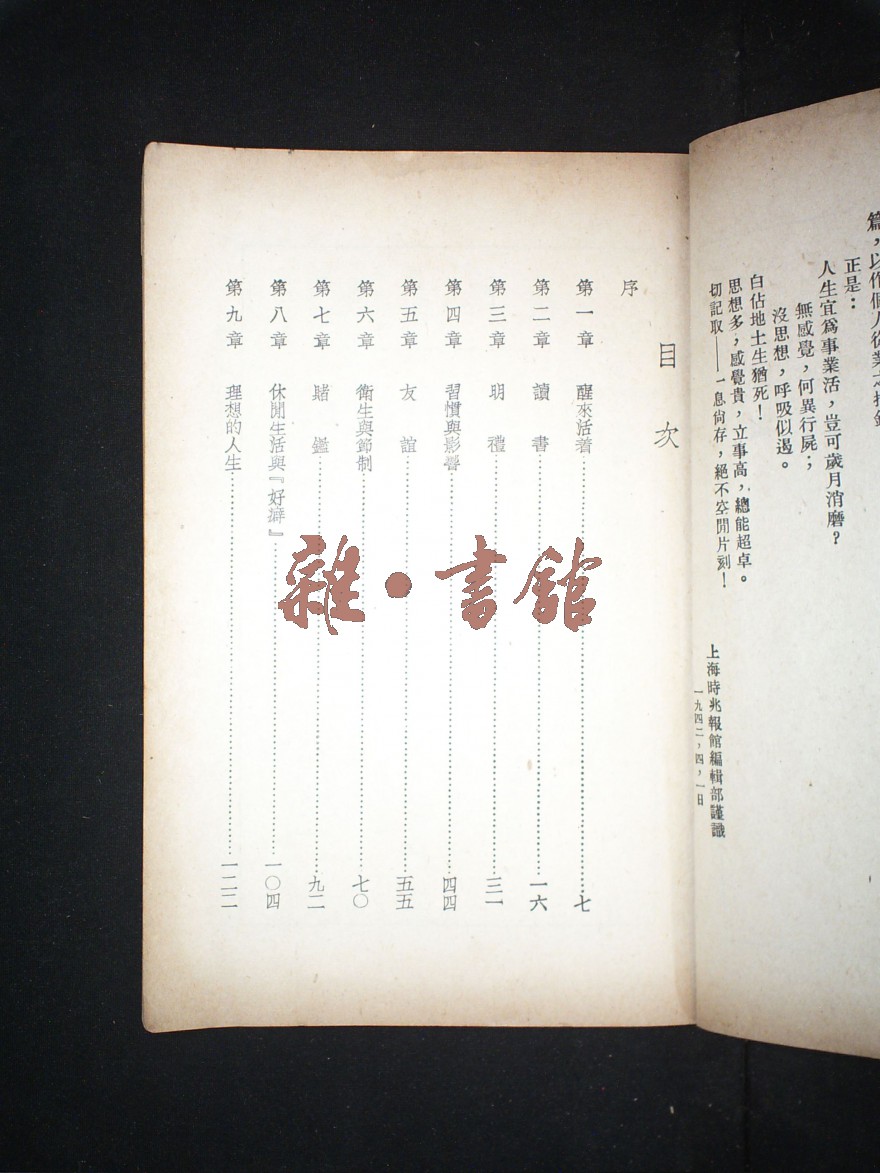 篇，以作個人從業之指針
正是：
人生宜爲事業活，豈可歲月消磨？
無感覺，何異行屍；
沒思想，呼吸似遏。
白佔地土生猶死！
思想多，感覺貴，立事高，總能超卓。
切記取——一息尙存，絕不空閒片刻！
上海時兆報館編輯部謹識
一九四二，四，一日
目次
序
第一章 醒來活着 七
第二章 讀書 一六
第三章 明禮 三一
第四章 習慣與影響 四四
第五章 友誼 五五
第六章 衛生與節制 七〇
第七章 賭鑑 九二
第八章 休閒生活與『好癖』 一〇四
第九章 理想的人生 一二二
雜·書館